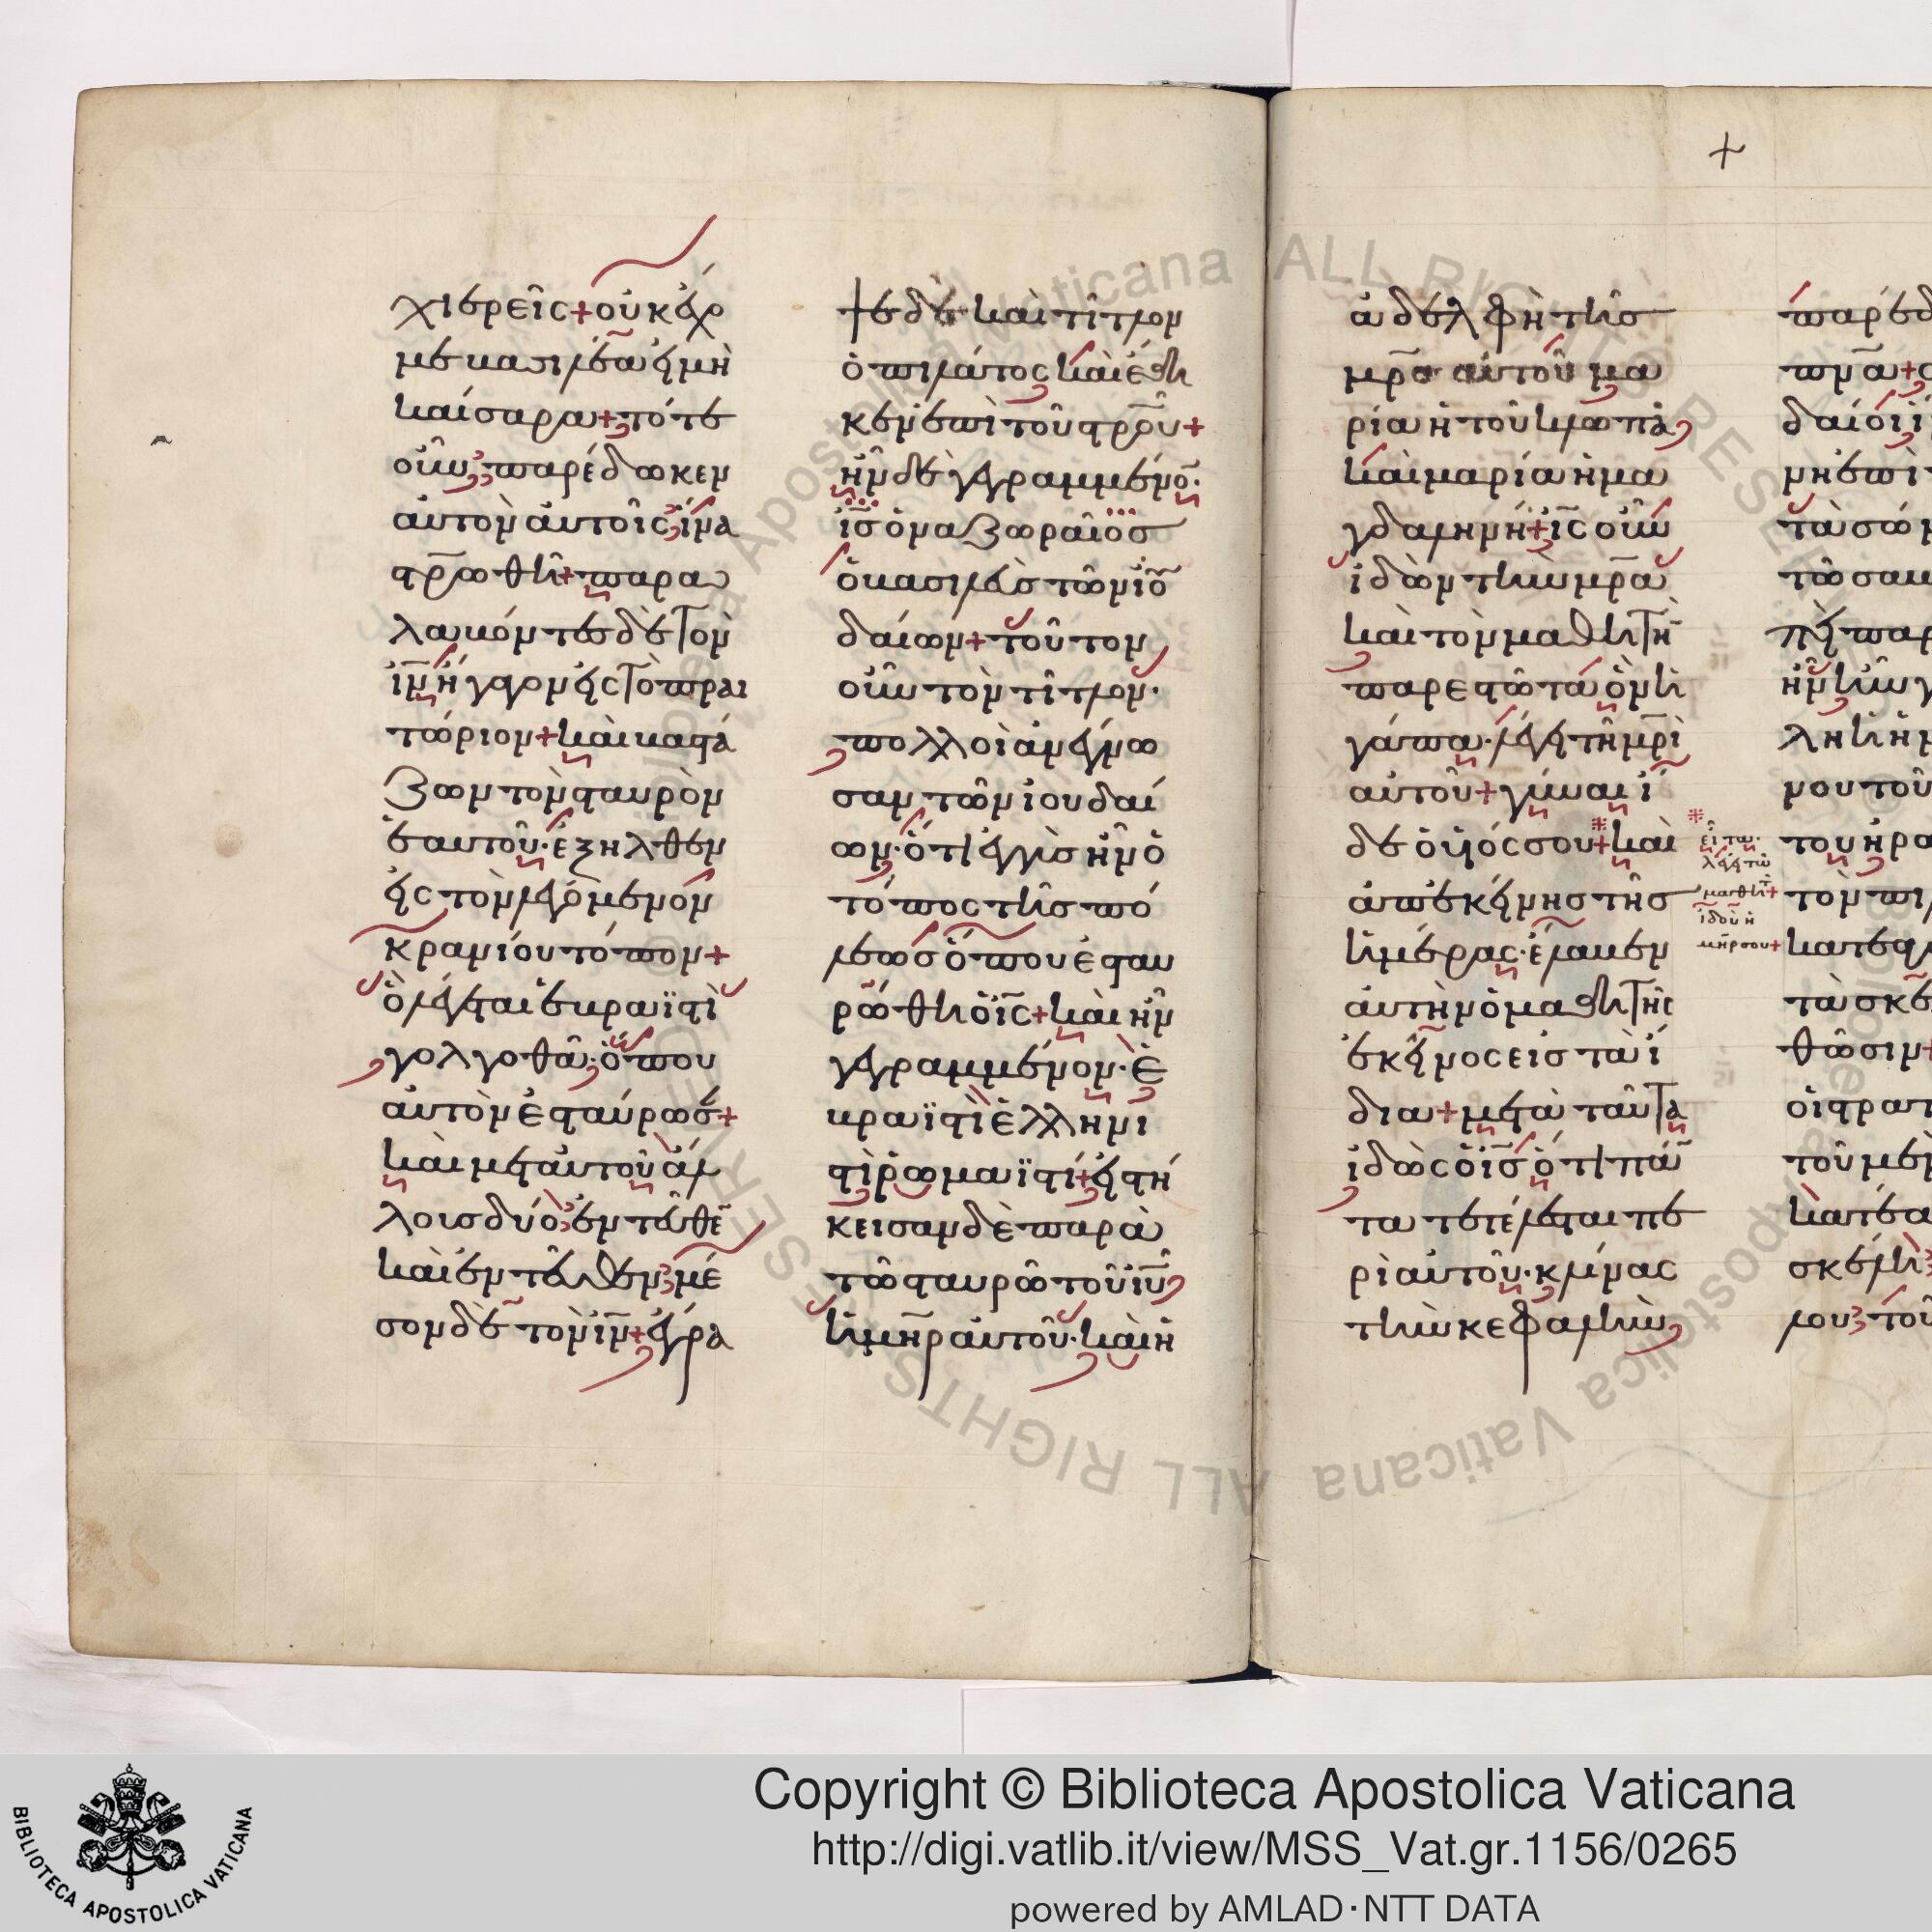 χιερεῖς + οὐκ ἔχο
μεν βασιλέα εἰ μὴ
καίσαρα + τότε
οὖν παρέδωκεν
αὐτὸν αὐτοῖς ἵνα
στ̅ρωθῆ + παρα
λαβόντες δὲ τὸν
ι̅ν̅ ἤγαγον εἰς τὸ πραι
τώριον + καὶ βαστά
ζων τὸν σταυρὸν
ἑαυτοῦ · ἐξῆλθεν
εἰς τὸν λεγόμενον
κρανίου τόπον +
ὃ λέγεται ἑβραϊστὶ
γολγοθᾶ · ὅπου
αὐτὸν ἐσταύρωσ̅ +
καὶ μετ αὐτοῦ ἄλ
λους δύο ἐντεῦθε̅
καὶ ἐντεῦθεν μέ
σον δὲ τὸν ι̅ν̅ + ἔγρα
ψε δὲ καὶ τίτλον
ὁ πιλάτος καὶ ἔθη
κεν ἐπὶ τοῦ στ̅ρ̅ου +
ἦν δὲ γεγραμμένο̅ ·
ι̅ς̅ ὁ ναζωραῖος
ὁ βασιλεὺς τῶν ἰου
δαίων + τοῦτον
οὖν τὸν τίτλον ·
πολλοὶ ἀνέγνω
σαν τῶν ἰουδαί
ων · ὅτι ἐγγὺς ἦν ὁ
τόπος τῆς πό
λεως ὅπου ἐσταυ
ρώθη ὁ ι̅ς̅ + καὶ ἦν
γεγραμμένον · ἑ
βραϊστὶ ἑλληνι
στὶ ῥωμαϊστί + εἱστή
κεισαν δὲ παρὰ
τῶ σταυρῶ τοῦ ι̅υ̅
ἡ μ̅η̅ρ αὐτοῦ · καὶ ἡ
ἀδελφὴ τῆς
μ̅ρ̅ς αὐτοῦ μα
ρία ἡ τοῦ κλωπᾶ
καὶ μαρία ἡ μα
γδαληνή + ι̅ς̅ οὖν
ἰδὼν τὴν μ̅ρ̅α
καὶ τὸν μαθητὴ̅
παρεστῶτα ὃν ἠ
γάπα · λέγει τῆ μ̅ρ̅ι
αὐτοῦ + γύναι ἴ
δε ὁ υἱός σου + καὶ
ἀπ ἐκείνης τῆς
ἡμέρας · ἔλαβεν
αὐτὴν ὁ μαθητὴς
ἐκεῖνος εἰς τὰ ἴ
δια + μετὰ ταῦτα
ἰδὼς ὁ ι̅ς̅ ὅτι πάν
τα τετέλεσται πε
ρὶ αὐτοῦ · κλίνας
τὴν κεφαλὴν
εἶτα ·
λέγει τῶ
μαθητῆ +
ἰδοὺ ἡ
μ̅η̅ρ σου +
παρέδ
π̅ν̅α +
δαῖοι ἵ
νη ἐπὶ
τὰ σώμ
τῶ σαβ
πεὶ παρ
ἦν
λη ἡ ἡμ
νου τοῦ
του ἠρώ
τὸν πιλ
κατεαγ
τὰ σκέ
θῶσιν +
οἱ στρατ
τοῦ μὲν
κατέα
σκέλη
λου τοῦ
Biblioteca Apostolica Vaticana ALL RIGHTS RESERVED
Copyright © Biblioteca Apostolica Vaticana
http://digi.vatlib.it/view/MSS_Vat.gr.1156/0265
powered by AMLAD·NTT DATA
BIBLIOTECA APOSTOLICA VATICANA